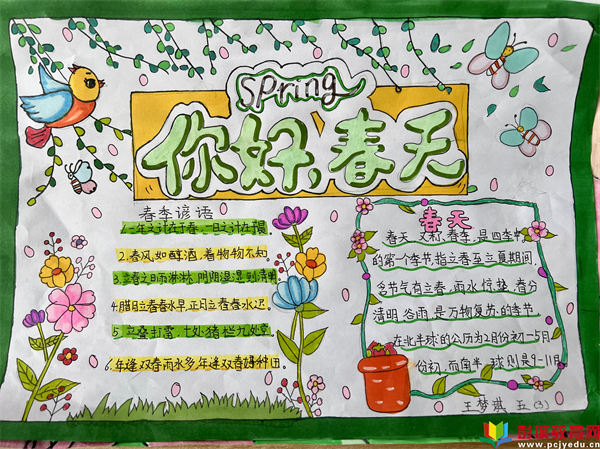 Spring
你好,春天
春季谚语
1.一年之计在于春,一日之计在于晨
2.春风如醇酒,着物物不知
3.立春之日雨淋淋,阴阴湿湿到清明
4.腊月立春春水早,正月立春春水迟。
5.立春打雷,十处猪栏九处空
6.年逢双春雨水多,年逢双春好种田。
春天
春天,又称春季,是四季中
的第一个季节指立春至立夏期间,
含节气有立春、雨水、惊蛰、春分
清明、谷雨,是万物复苏的季节
在北半球的公历为2月份初-5月
份初,而南半球则是9-11月
王梦 五(3)
彭课教育网
www.pcjyedu.cn